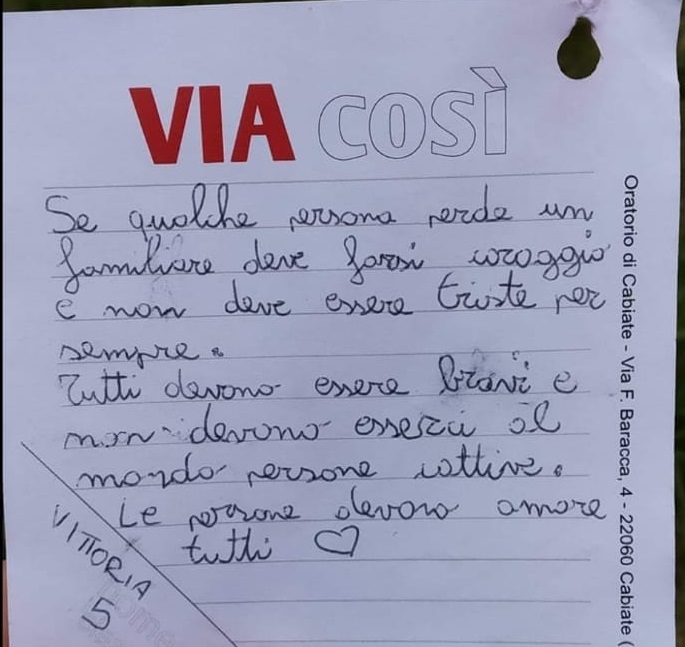 VIA COSÌ
Se qualche persona perde un
familiare deve farsi coraggio
e non deve essere triste per
sempre.
Tutti devono essere bravi e
non devono esserci al
mondo persone cattive.
Le persone devono amare
tutti ♡
VITTORIA
5
Oratorio di Cabiate - Via F. Baracca, 4 - 22060 Cabiate (